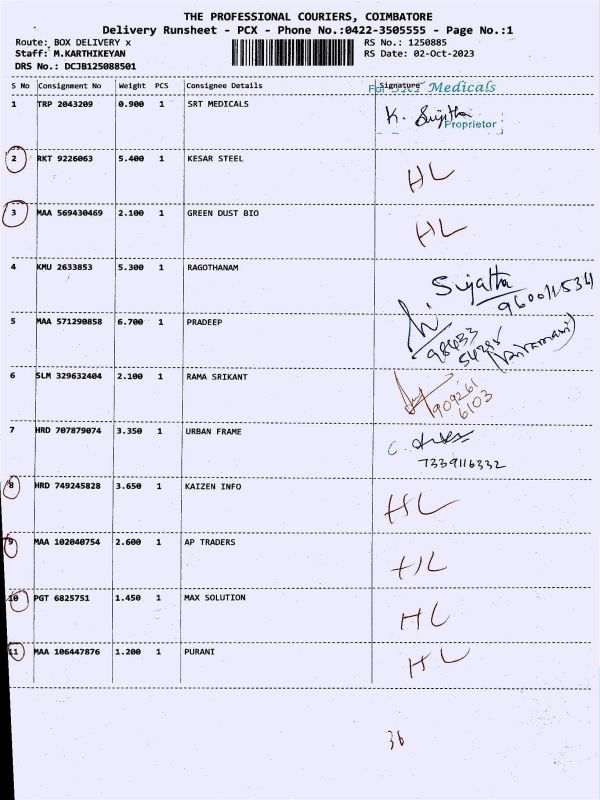 THE PROFESSIONAL COURIERS, COIMBATORE
Delivery Runsheet - PCX - Phone No.:0422-3505555 - Page No.:1
Route: BOX DELIVERY x RS No.: 1250885
Staff: M.KARTHIKEYAN RS Date: 02-Oct-2023
DRS No.: DCJB125088501
S No Consignment No Weight PCS Consignee Details Signature
Medicals
1 TRP 2043209 0.900 1 SRT MEDICALS
K. Sujitha
Proprietor
2 RKT 9226063 5.400 1 KESAR STEEL HL
3 MAA 569430469 2.100 1 GREEN DUST BIO HL
4 KMU 2633853 5.300 1 RAGOTHANAM Sujatha
5 MAA 571290858 6.700 1 PRADEEP
98433
6 SLM 329632404 2.100 1 RAMA SRIKANT
909261
6103
7 HRD 707879074 3.350 1 URBAN FRAME
7339116332
8 HRD 749245828 3.650 1 KAIZEN INFO HL
9 MAA 102040754 2.600 1 AP TRADERS HL
10 PGT 6825751 1.450 1 MAX SOLUTION HL
11 MAA 106447876 1.200 1 PURANI HL
36